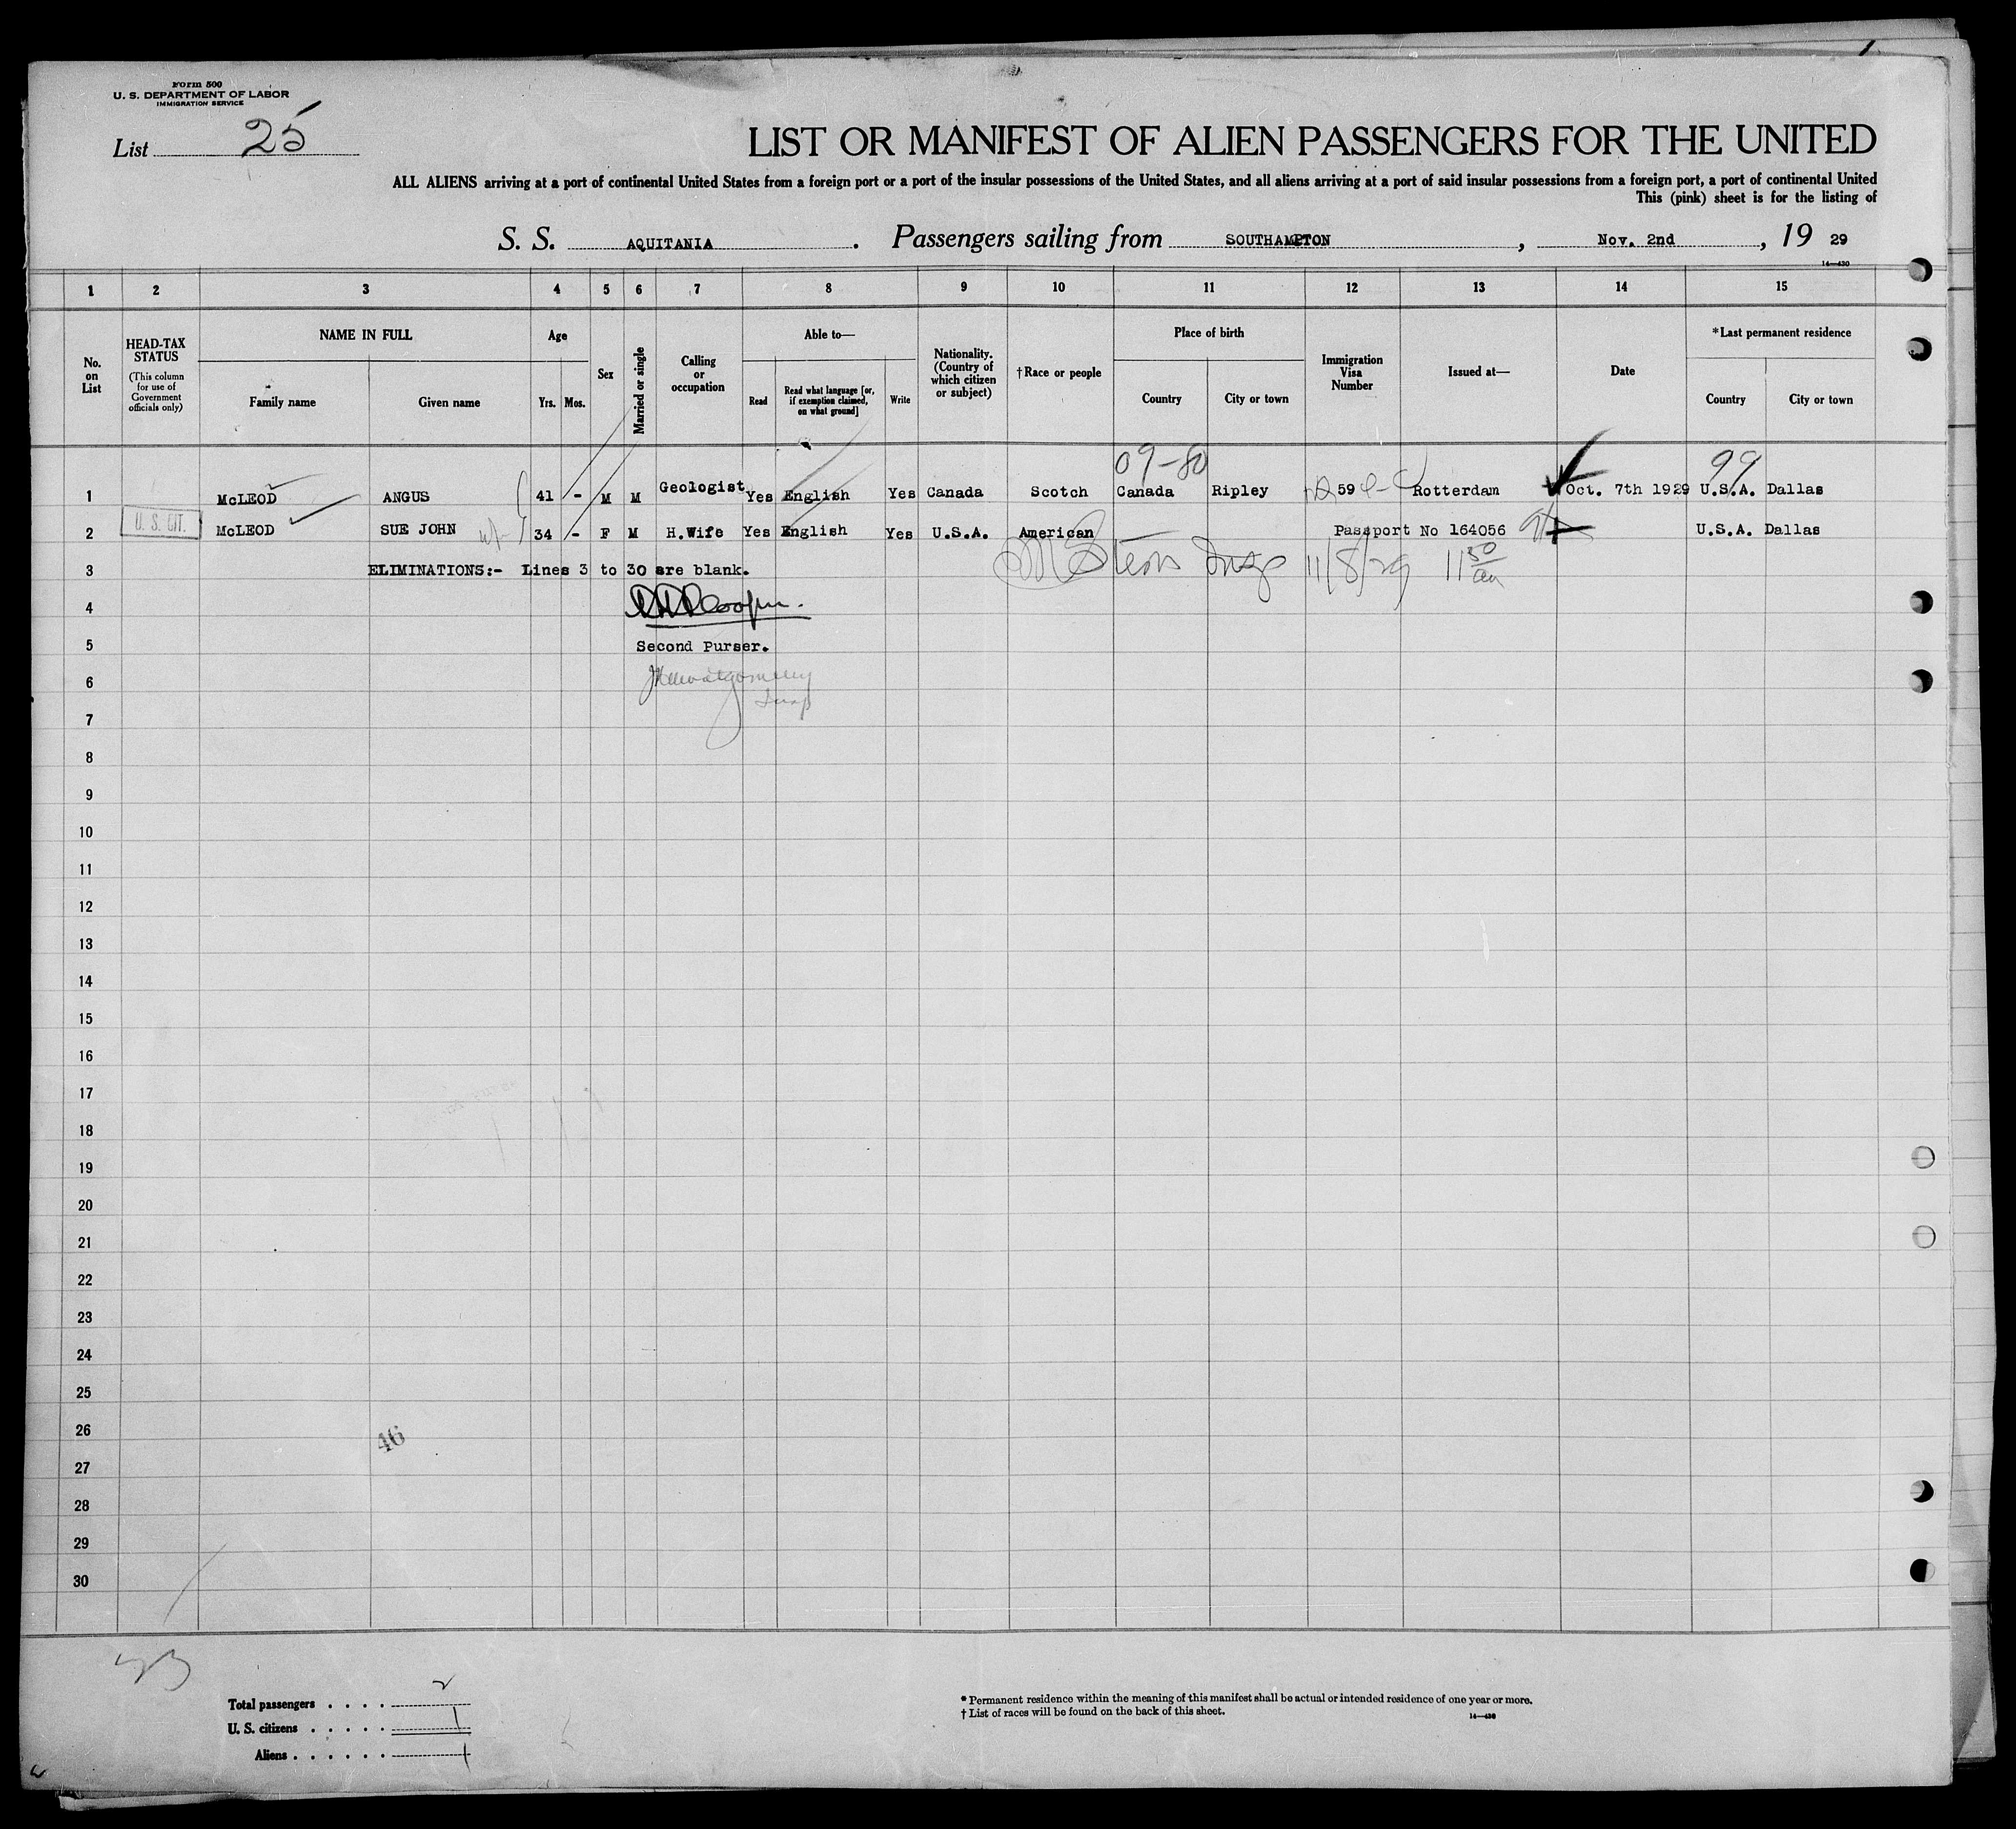 Form 500
U. S. DEPARTMENT OF LABOR
IMMIGRATION SERVICE
List 25
LIST OR MANIFEST OF ALIEN PASSENGERS FOR THE UNITED
ALL ALIENS arriving at a port of continental United States from a foreign port or a port of the insular possessions of the United States, and all aliens arriving at a port of said insular possessions from a foreign port, a port of continental United
This (pink) sheet is for the listing of
S. S. AQUITANIA. Passengers sailing from SOUTHAMPTON, Nov. 2nd, 19 29
14—430
1 2 3 4 5 6 7 8 9 10 11 12 13 14 15
No. on List
HEAD-TAX STATUS (This column for use of Government officials only)
NAME IN FULL
Family name Given name
Age
Yrs. Mos.
Sex
Married or single
Calling or occupation
Able to—
Read Read what language [or, if exemption claimed, on what ground] Write
Nationality. (Country of which citizen or subject)
†Race or people
Place of birth
Country City or town
Immigration Visa Number
Issued at—
Date
*Last permanent residence
Country City or town
09-80 99
1 McLEOD ANGUS 41 - M M Geologist Yes English Yes Canada Scotch Canada Ripley 59 Rotterdam Oct. 7th 1929 U.S.A. Dallas
2 U. S. CIT. McLEOD SUE JOHN 34 - F M H.Wife Yes English Yes U.S.A. American Passport No 164056 U.S.A. Dallas
3 ELIMINATIONS:- Lines 3 to 30 are blank. 11/8/29 11 50 am
4
5 Second Purser.
6 Montgomery
Insp
7
8
9
10
11
12
13
14
15
16
17
18
19
20
21
22
23
24
25
26 46
27
28
29
30
Total passengers . . . . 2
U. S. citizens . . . . . 1
Aliens . . . . . . 1
* Permanent residence within the meaning of this manifest shall be actual or intended residence of one year or more.
† List of races will be found on the back of this sheet.
14—430